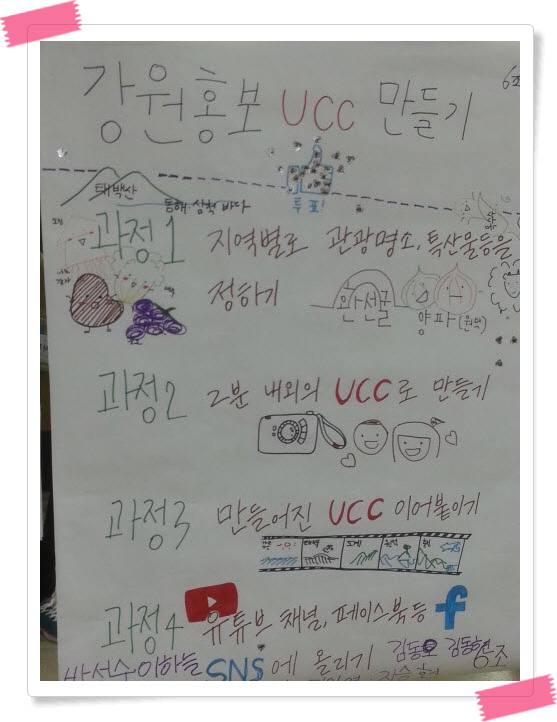 강원홍보 UCC 만들기
6조
태백산
동해·삼척 바다
투표!
과정1 지역별로 관광명소, 특산물등을
정하기
환선굴
양파(원덕)
과정2 2분 내외의 UCC로 만들기
과정3 만들어진 UCC 이어붙이기
과정4 유튜브 채널, 페이스북 등 f
SNS에 올리기